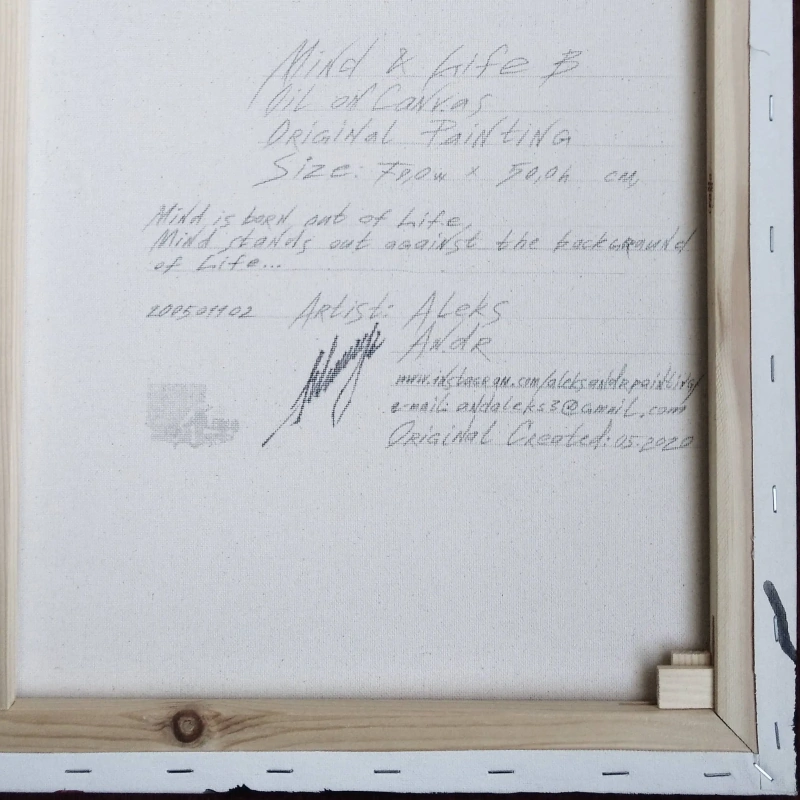 Mind & Life B
Oil on Canvas
Original Painting
Size: 70,0w x 50,0h cm,
Mind is born out of Life,
Mind stands out against the background
of Life...
200501102 Artist: Aleks
Andr
www.instagram.com/aleksandrpainting/
e-mail: andaleks3@gmail.com
Original Created: 05.2020